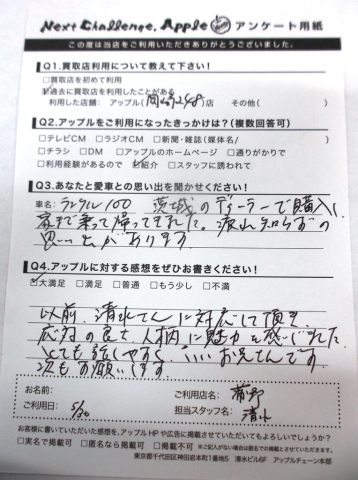 Next Challenge. Apple アンケート用紙
この度は当店をご利用いただきありがとうございました。
Q1.買取店利用について教えて下さい!
□買取店を初めて利用
□過去に買取店を利用したことがある
利用した店舗: アップル( 248 )店 その他( )
Q2.アップルをご利用になったきっかけは?(複数回答可)
□テレビCM □ラジオCM □新聞・雑誌(媒体名/ )
□チラシ □DM □アップルのホームページ □通りがかりで
□利用経験があるので □紹介 □スタッフに誘われて
Q3.あなたと愛車との思い出を聞かせください!
車名: ランクル100 茨城のディーラーで購入し
家まで乗って帰ってきました。
思い出があります
Q4.アップルに対する感想をぜひお書きください!
□大満足 □満足 □普通 □もう少し □不満
以前、清水さんに対応して頂き、
応対の良さ、人柄に魅力を感じました
とても話しやすく、いいお兄さんです。
次もお願いします。
お名前:
ご利用店名:
ご利用日: 5/30
担当スタッフ名: 清水
お客様に書いていただいた感想を、アップルHPや広告に掲載させていただいてもよろしいでしょうか?
□実名で掲載可 □匿名なら掲載可 □掲載不可 ※ご記入がない場合は匿名での掲載とさせていただきます。
東京都千代田区神田岩本町1番地5 清水ビル6F アップルチェーン本部